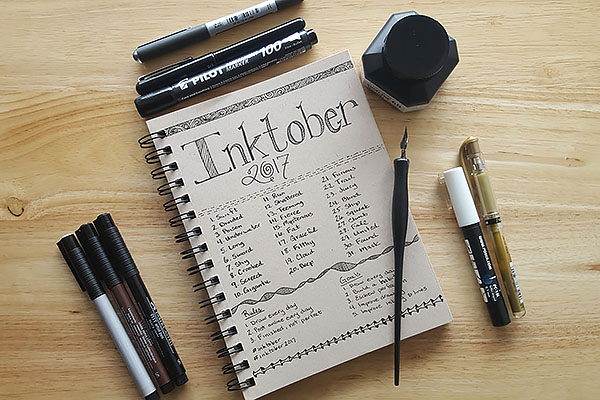 PILOT MARKER 100
Inktober
2017
1. Swift
2. Divided
3. Poison
4. Underwater
5. Long
6. Sword
7. Shy
8. Crooked
9. Screech
10. Gigantic
11. Run
12. Shattered
13. Teeming
14. Fierce
15. Mysterious
16. Fat
17. Graceful
18. Filthy
19. Cloud
20. Deep
21. Furious
22. Trail
23. Juicy
24. Blind
25. Ship
26. Squeak
27. Climb
28. Fall
29. United
30. Found
31. Mask
Rules
1. Draw every day
2. Post online every day
3. Finished, not perfect
#inktober
#inktober2017
Goals
1. Draw every day
2. Build a habit
3.
4. Improve drawing
5. Improve